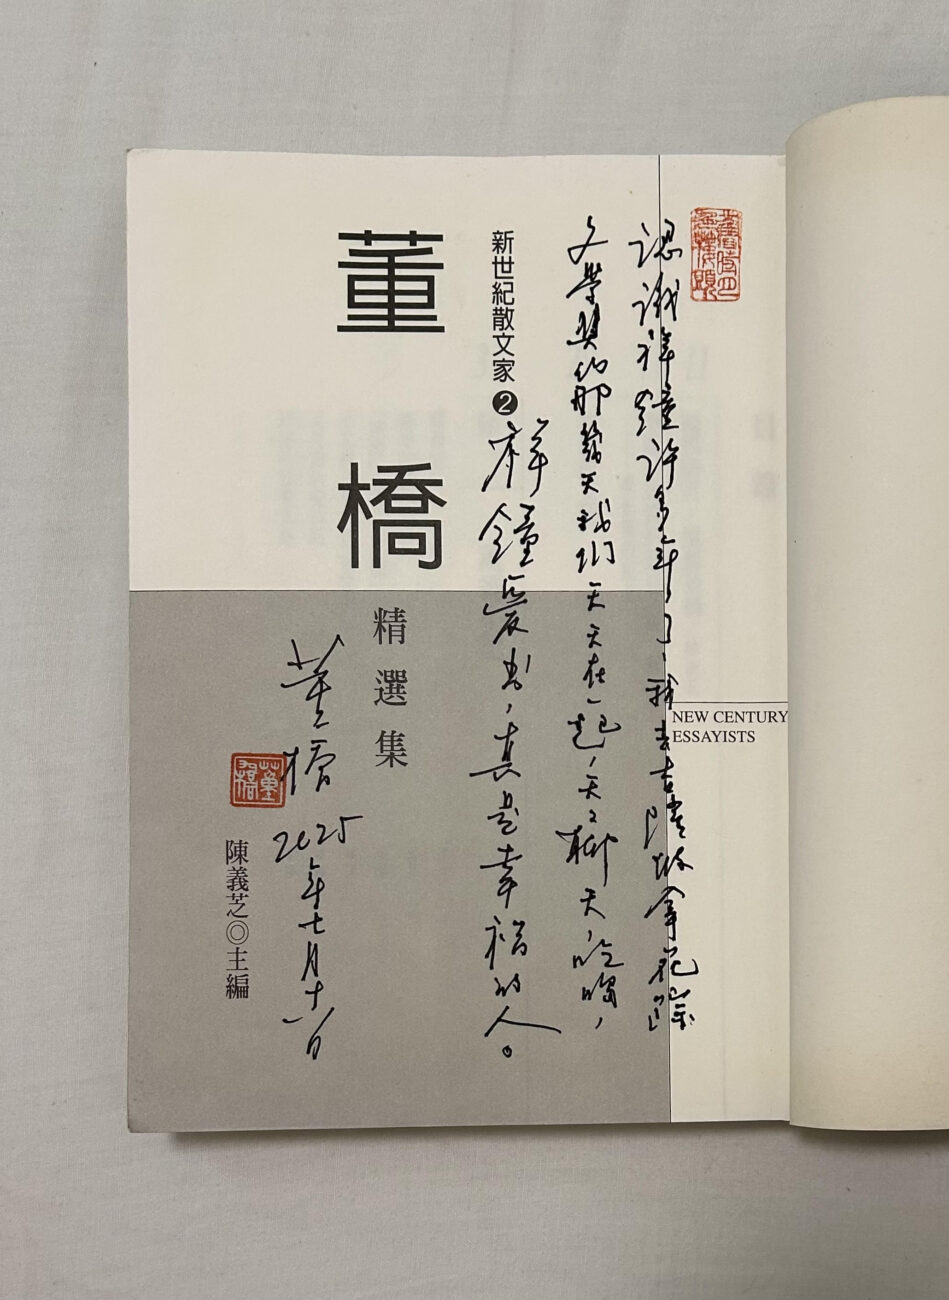 認識祥鐘許多年了、我去吉隆坡拿花踪
文學獎的那幾天我們天天在一起，天々聊天，吃喝，
祥鐘愛書，真是幸福的人。
新世紀散文家❷
董橋
精選集
董橋
2025年七月十八日
董橋
陳義芝◎主編
NEW CENTURY
ESSAYISTS